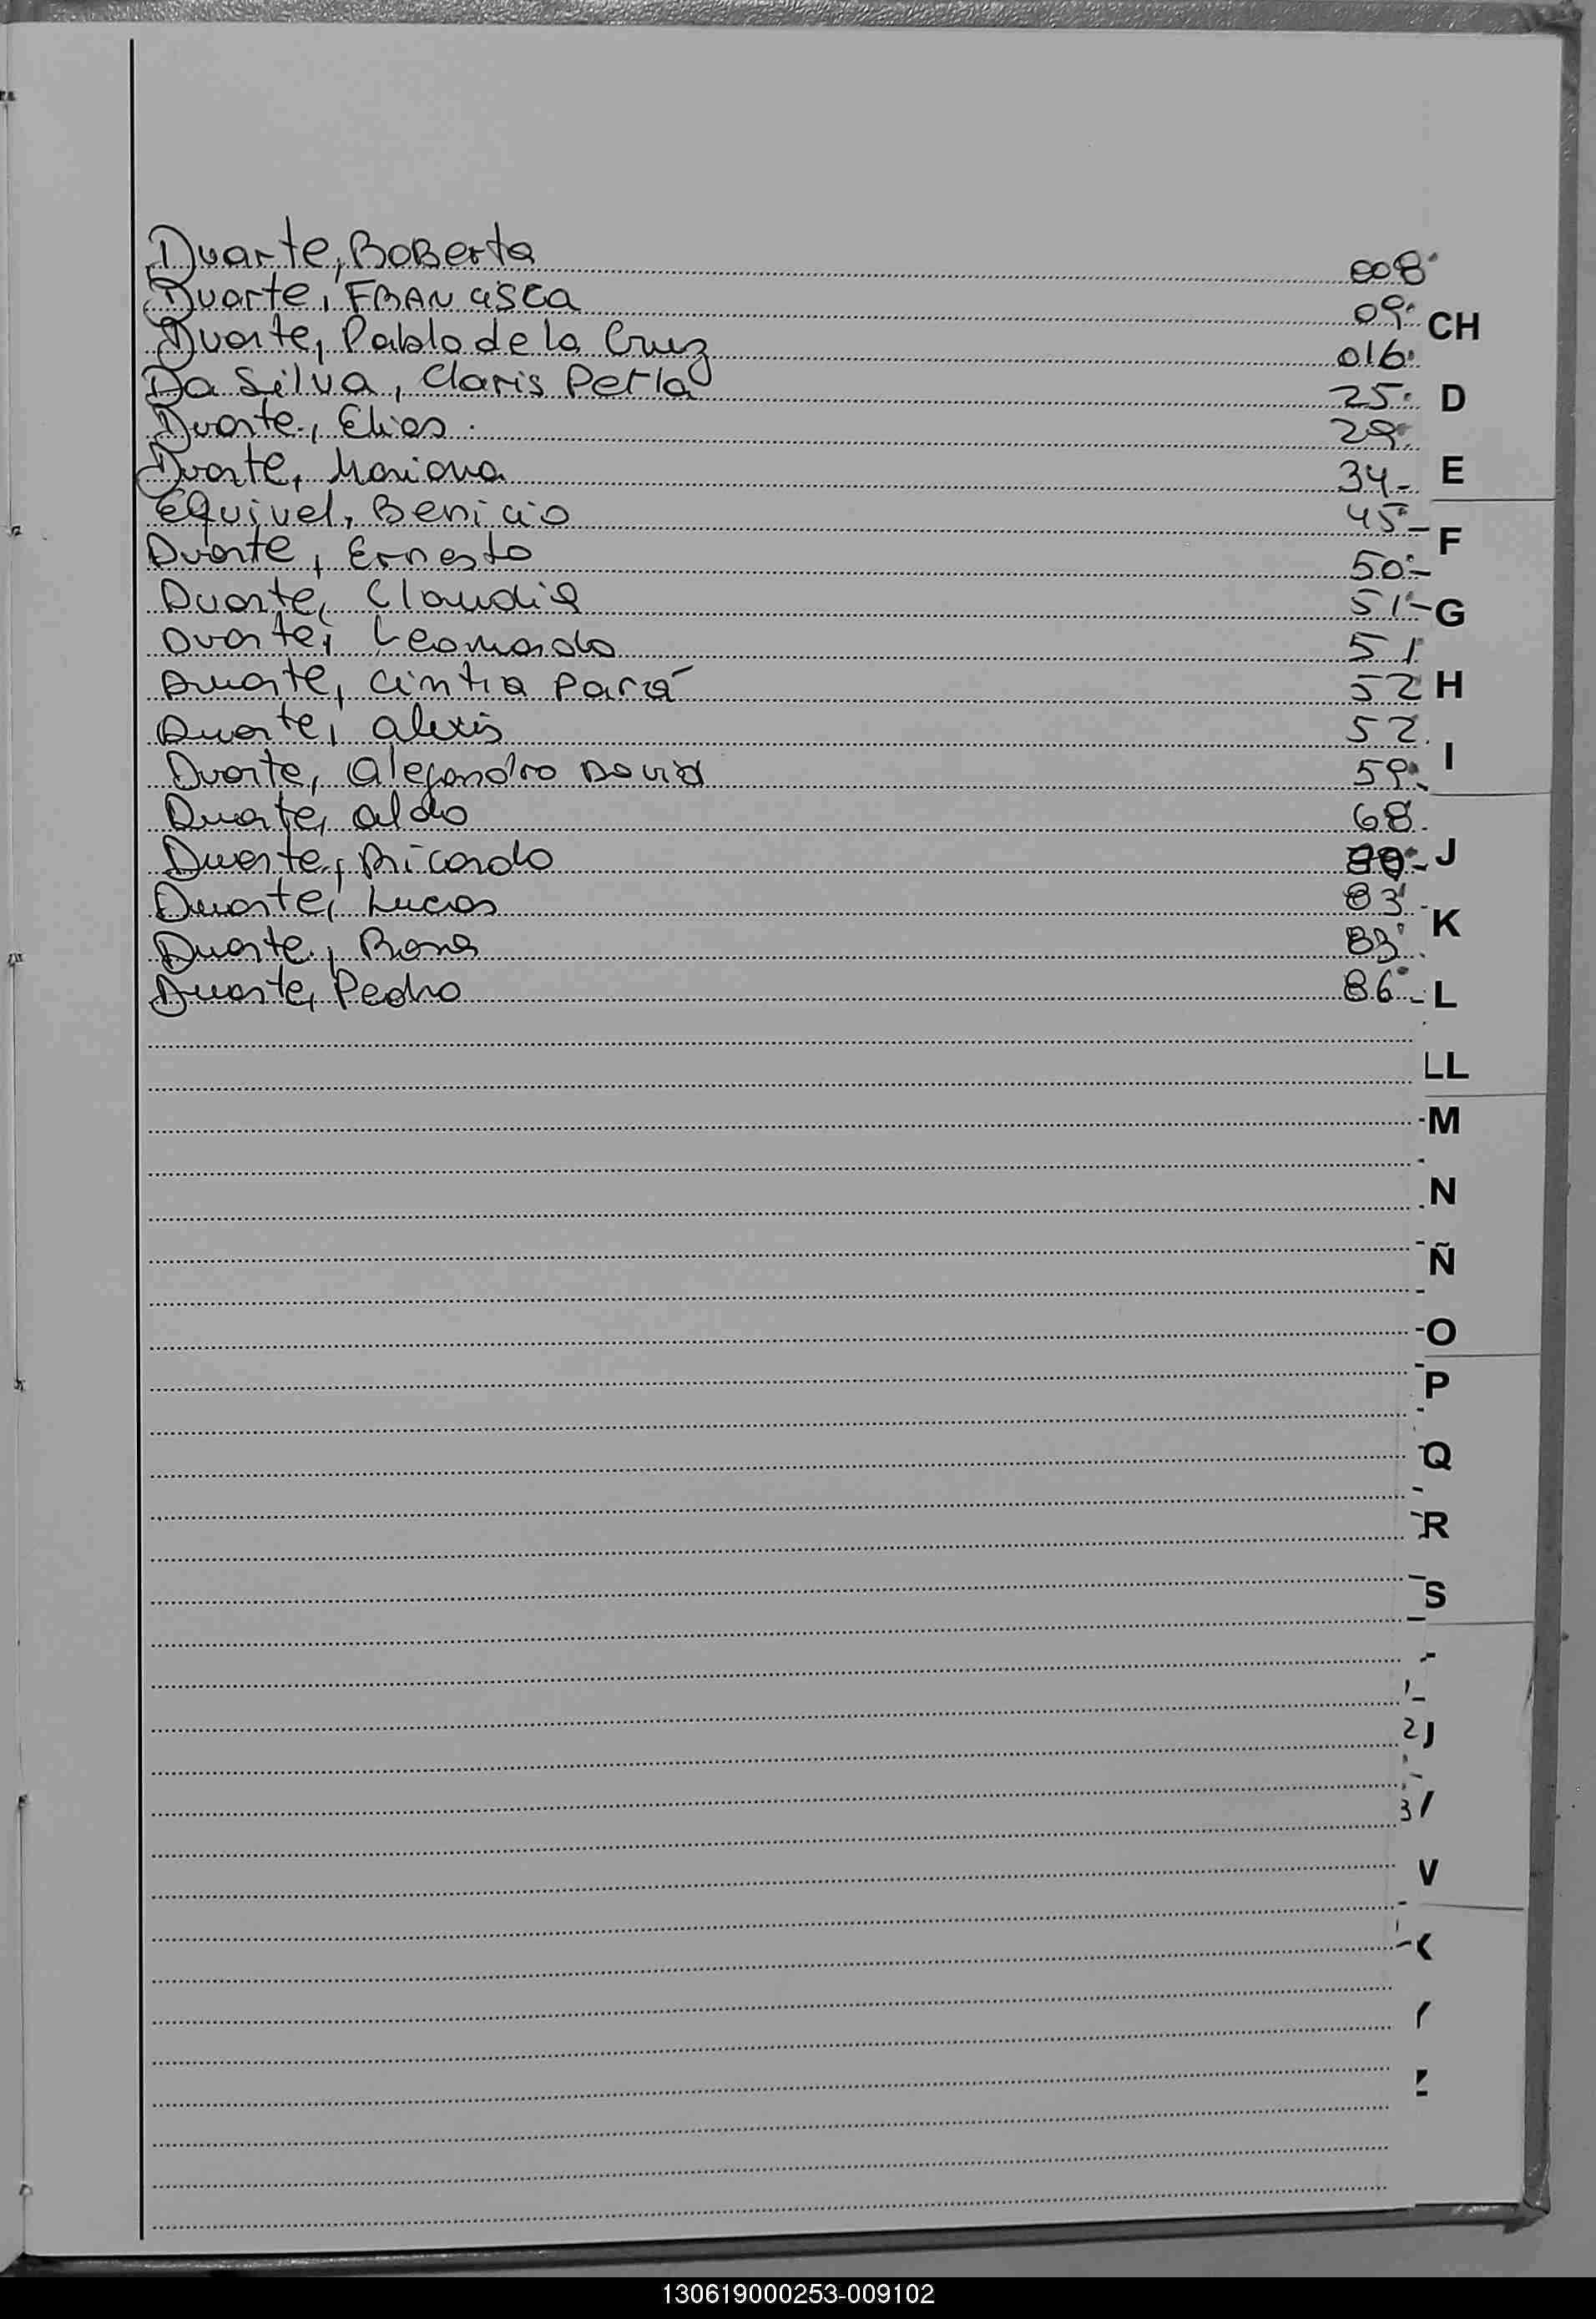 Duarte, Roberta 008
Duarte, FRANcisca 09 CH
Duarte, Pablo de la Cruz 016
Da Silva, Claris Perla 25 D
Duarte, Elias 29
Duarte, Mariana 34 E
Equivel, Benicio 45
Duarte, Ernesto 50 F
Duarte, Claudia 51 G
Duarte, Leonardo 51
Duarte, Cintia Pará 52 H
Duarte, Alexis 52
Duarte, Alejandro David 59 I
Duarte, Aldo 68
Duarte, Ricardo J
Duarte, Lucas 83 K
Duarte, Rosa 83
Duarte, Pedro 86 L
LL
M
N
Ñ
O
P
Q
R
S
V
130619000253-009102